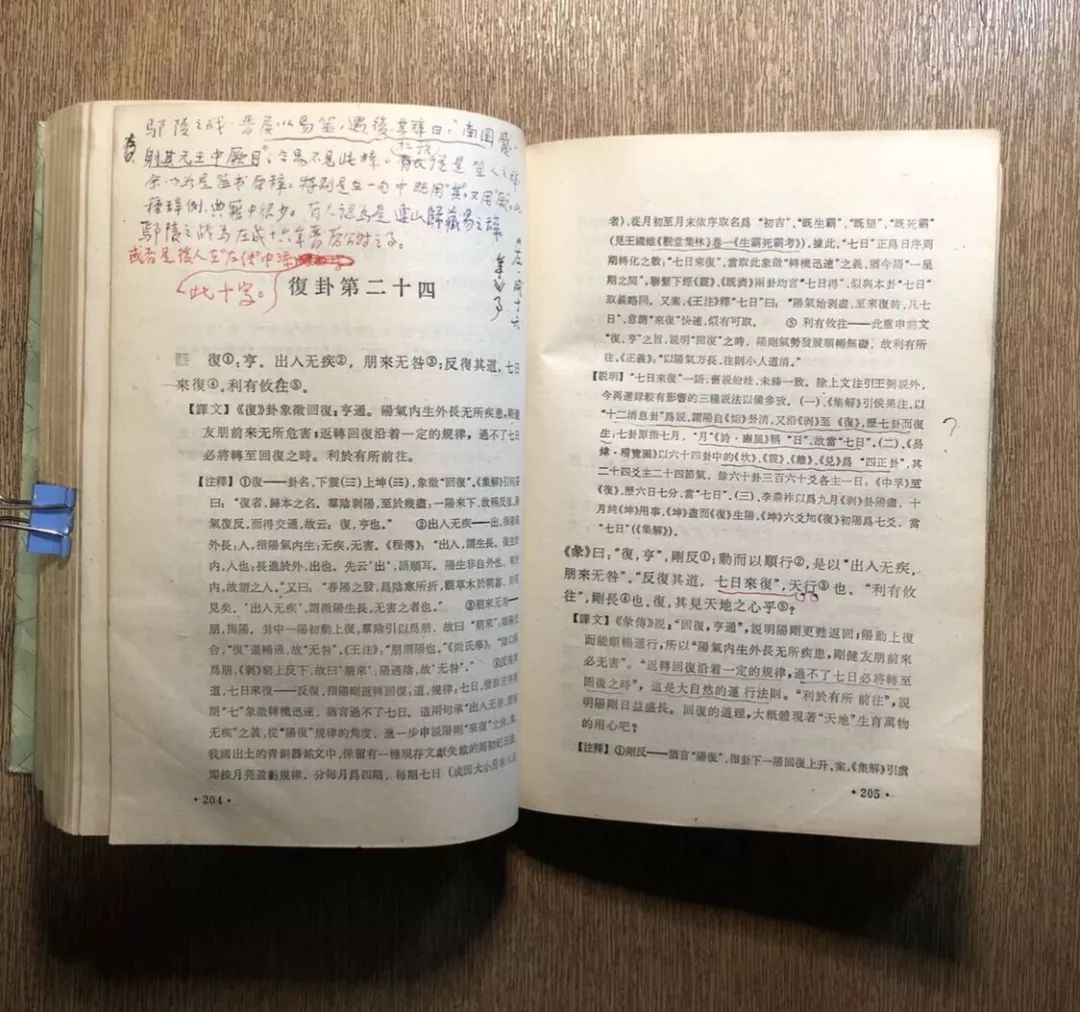 鄢陵之战
南国
射其元王中厥目
今易不見此
筮人之辞
特别是在一句中既用"其"又用"厥"
典籍中很少。有人認為是連山歸藏易之辭
鄢陵之战
或者是後人在左传中添
此十字。
復卦第二十四
復①:亨。出入无疾②,朋來无咎③;反復其道,七日
來復④,利有攸往⑤。
【譯文】《復》卦象徵回復:亨通。陽氣内生外長无所疾患,剛健
友朋前來无所危害;返轉回復沿着一定的規律,過不了七日
必將轉至回復之時。利於有所前往。
【注釋】①復——卦名,下震(☳)上坤(☷),象徵"回復"。《集解》引何妥
曰:"復者,歸本之名。羣陰剥陽,至於幾盡;一陽來下,故稱反復。
氣復反,而得交通,故云:復,亨也。" ②出入无疾——出,指陽氣
外長;入,指陽氣内生;无疾,无害。《程傳》:"出入,謂生長。復生於
内,入也;長進於外,出也。先云'出',語順耳。陽生非自外也,來於
内,故謂之入。"又曰:"春陽之發,爲陰寒所折,觀草木於朝暮,則可
見矣。'出入无疾',謂微陽生長,无害之者也。" ③朋來无咎——
朋,指陽。卦中一陽初動上復,羣陰引以爲朋,故曰"朋來";
合,"復"道暢通,故"无咎"。《王注》:"朋謂陽也。"《尚氏學》:
爲朋,《剥》窮上反下,故曰'朋來',陽遇陰,故'无咎'。" ④反復其
道,七日來復——反復,指陽剛返轉回復;道,規律;七日,
期"七"象徵轉機迅速,猶言過不了七日。這兩句承"出入无疾,
无疾"之義,從"陽復"規律的角度,進一步申説陽剛"來復"之快。案,
我國出土的青銅器銘文中,保留有一種現存文獻失載的周初紀日法,
即按月亮盈虧規律,分每月爲四期,每期七日(或因大小月有八日
·204·
者),從月初至月末依序取名爲"初吉"、"既生霸"、"既望"、"既死霸"
(見王國維《觀堂集林》卷一《生霸死霸考》)。據此,"七日"正爲日序周
期轉化之數;"七日來復",當取此象徵"轉機迅速"之義,猶今語"一星
期之間"。聯繫下經《震》、《既濟》兩卦均言"七日得",似與本卦"七日"
取義略同。又案,《王注》釋"七日"曰:"陽氣始剥盡,至來復時,凡七
日",意謂"來復"快速,似有可取。 ⑤利有攸往——此重申前文
"復,亨"之旨,説明"回復"之時,陽剛氣勢發展順暢無礙,故利有所
往。《正義》:"以陽氣方長,往則小人道消。"
【説明】"七日來復"一語,舊説紛歧,未臻一致。除上文注引王弼説外,
今再選録較有影響的三種説法以備參攷。(一)、《集解》引侯果注,以
"十二消息卦"爲説,謂陽自《姤》卦消,又沿《剥》至《復》,歷七卦而復
生;七卦原指七月,"月"《詩·豳風》稱"日",故當"七日"。(二)、《易
緯·稽覽圖》以六十四卦中的《坎》、《震》、《離》、《兑》爲"四正卦",其
二十四爻主二十四節氣,餘六十卦三百六十爻各主一日,《中孚》至
《復》,歷六日七分,當"七日"。(三)、李鼎祚以爲九月《剥》卦陽盡,十
月純《坤》用事,《坤》盡而《復》生陽,《坤》六爻加《復》初陽爲七爻,當
"七日"(《集解》)。
?
《彖》曰:"復,亨",剛反①;動而以順行②,是以"出入无疾,
朋來无咎"。"反復其道,七日來復",天行③也。"利有攸
往",剛長④也。復,其見天地之心乎⑤?
【譯文】《彖傳》説:"回復,亨通",説明陽剛更甦返回;陽動上復
而能順暢通行,所以"陽氣内生外長无所疾患,剛健友朋前來
必无害"。"返轉回復沿着一定的規律,過不了七日必將轉至
回復之時",這是大自然的運行法則。"利於有所前往",説
明陽剛日益盛長。回復的道理,大概體現著"天地"生育萬物
的用心吧?
【注釋】①剛反——猶言"陽復",指卦下一陽回復上升。案,《集解》引虞
·205·